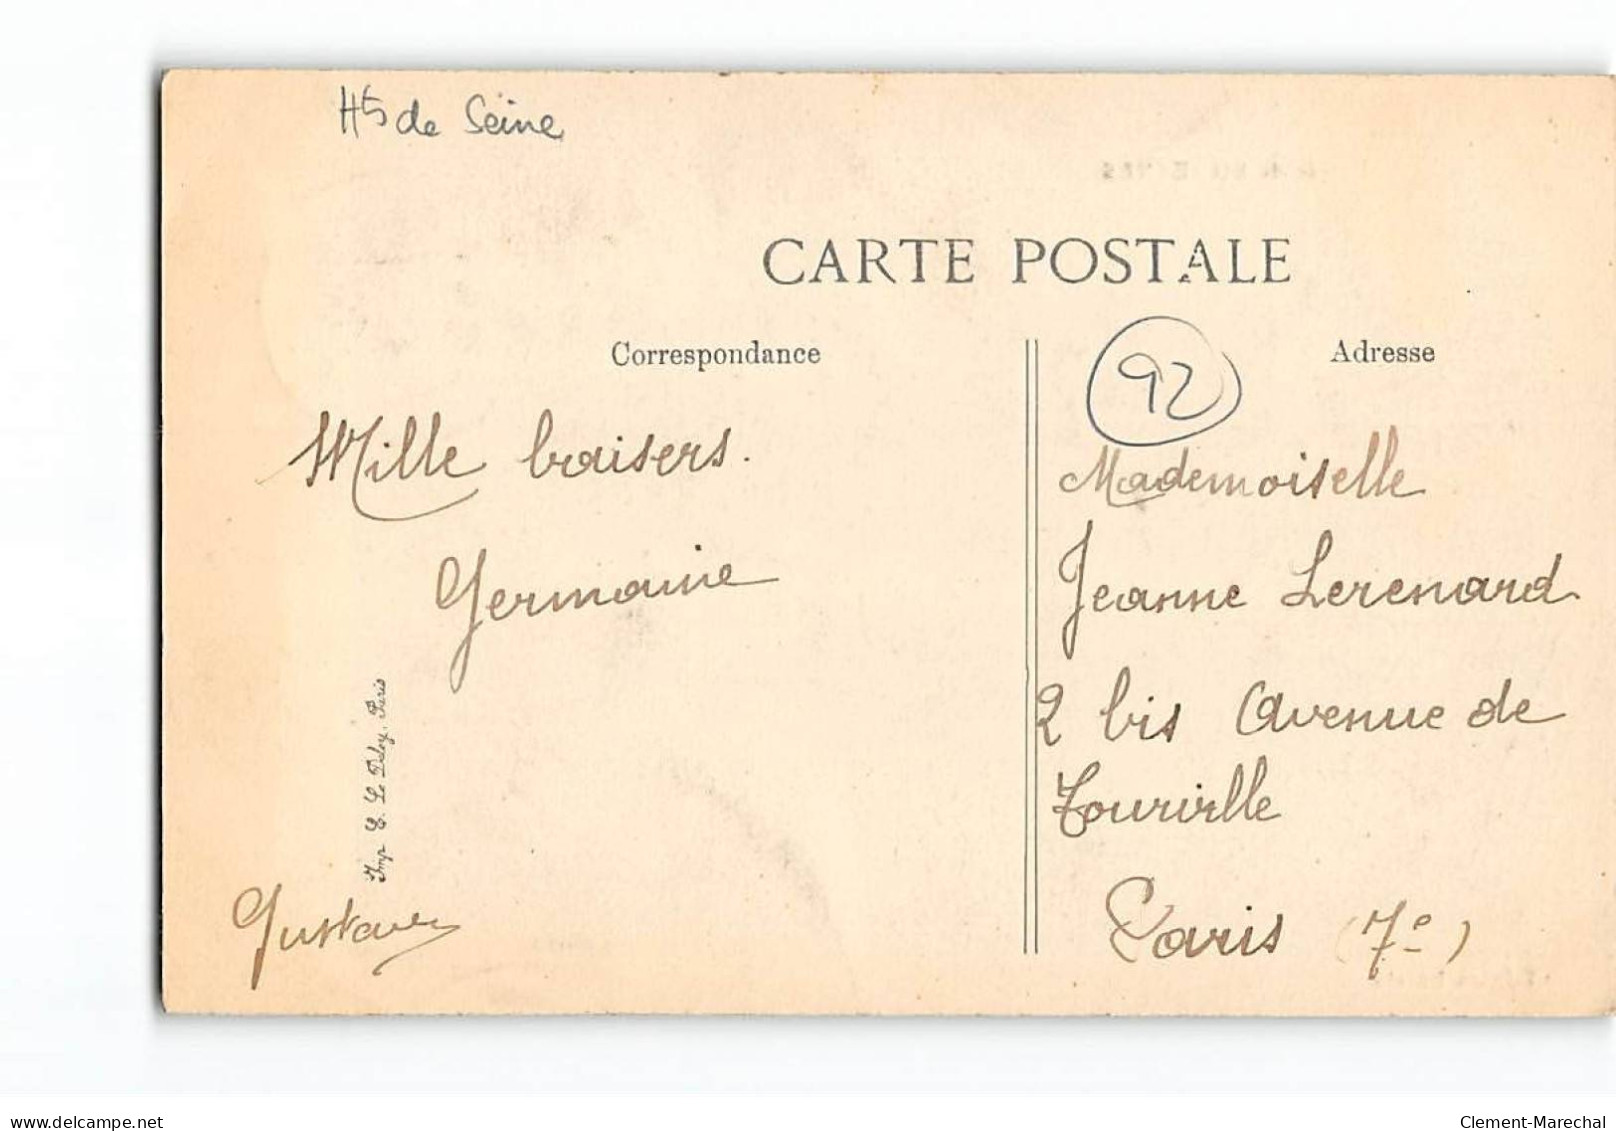 Hts de Seine
CARTE POSTALE
Correspondance
Adresse
92
Mille baisers.
Germaine
Gustave
Imp. E. Le Deley, Paris
Mademoiselle
Jeanne Lerenard
2 bis Avenue de
Tourville
Paris (7e)
www.delcampe.net
Clement-Marechal